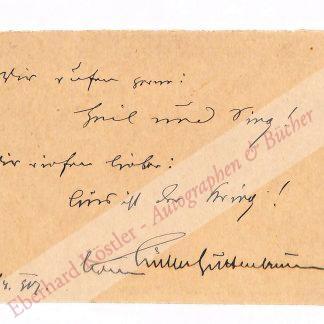 Wir rufen gerne:
Heil und Sieg!
Wir riefen lieber:
Aus ist der Krieg!
Müller-Guttenbrunn
Eberhard Köstler - Autographen & Bücher